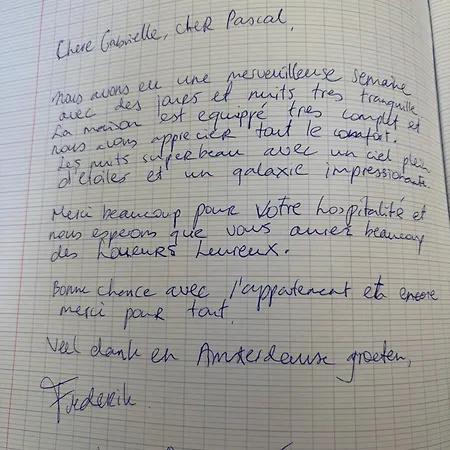 Chere Gabrielle, cher Pascal,
Nous avons eu une merveilleuse semaine
avec des jours et nuits tres tranquille
La maison est equippé tres complet et
nous avons apprecier tout le comfort.
Les nuits superbeau avec un ciel plein
d'étoiles et un galaxie impressionante
Merci beaucoup pour votre hospitalité et
nous esperons que vous aurier beaucoup
des loueurs heureux.
Bonne chance avec l'appatement et encore
merci pour tout.
Veel dank en Amsterdamse groeten,
Frederik